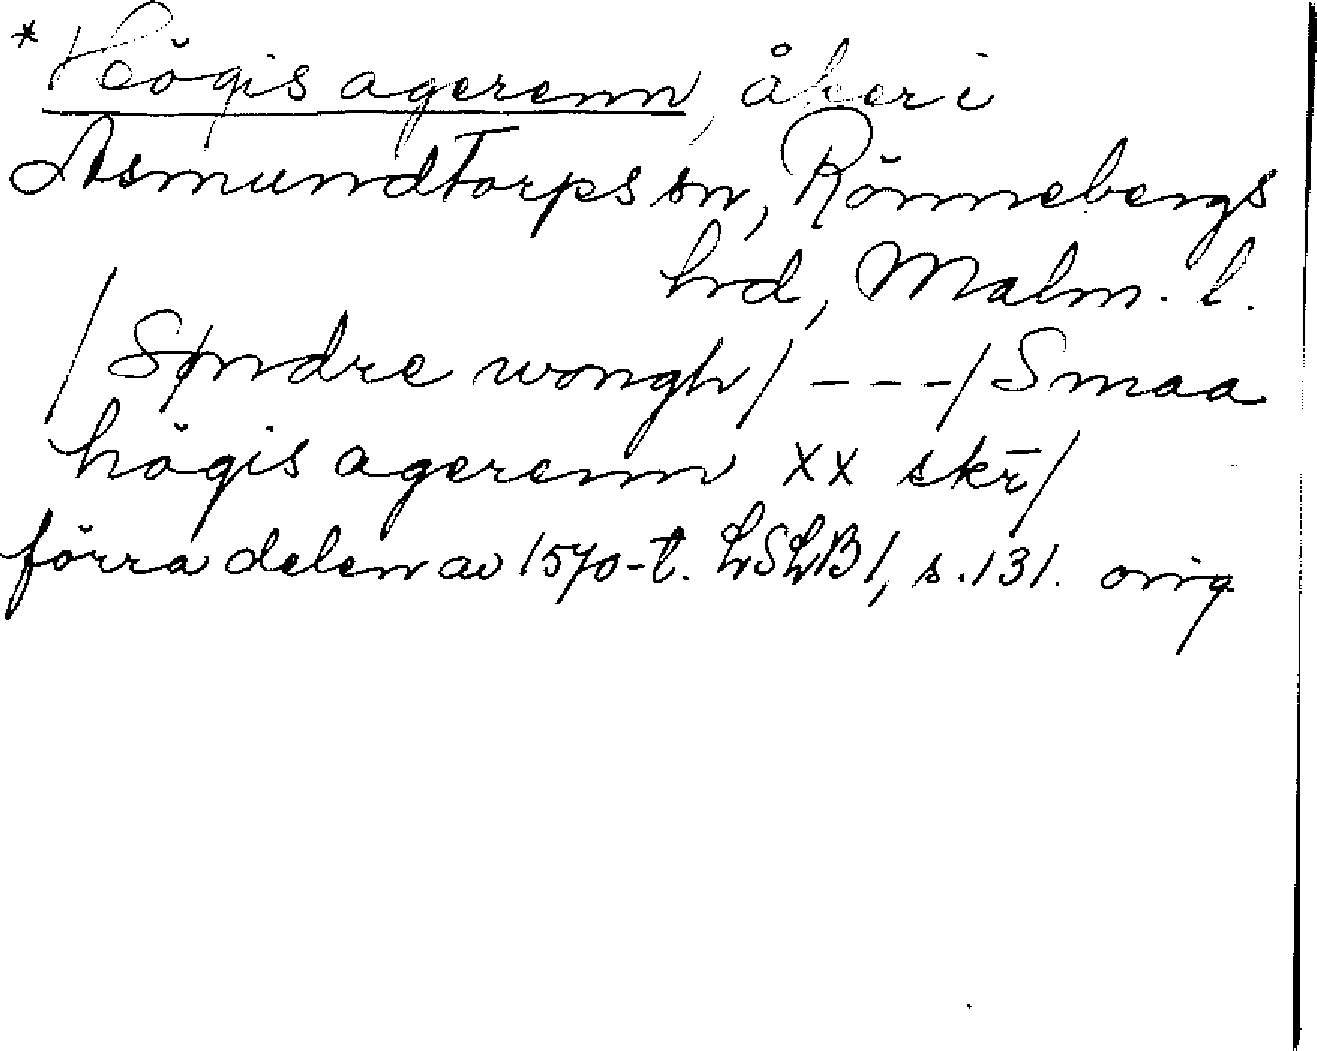 * Högis agerenn, åker i
Asmundtorps sn, Rönnebergs
hrd, Malm. l.
/Søndre wongh/ ---/ Smaa
högis agerenn xx skr̄/
förra delen av 1570-t. LSLB1, s. 131. orig